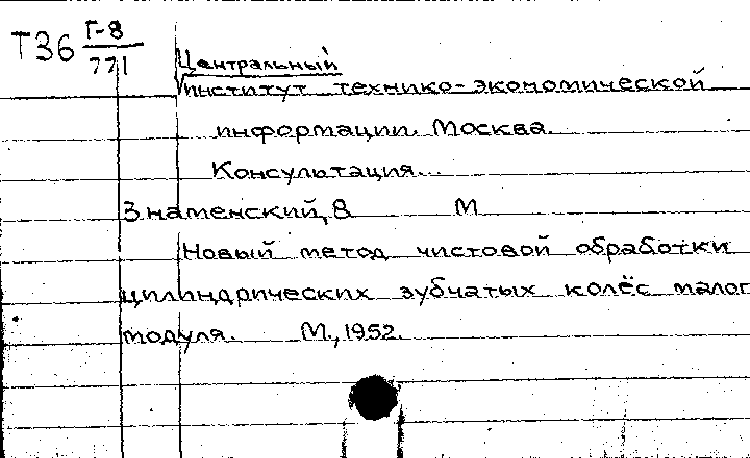 Т36 Г-8
771
Центральный
институт технико-экономической
информации. Москва.
Консультация...
Знаменский, В М
Новый метод чистовой обработки
цилиндрических зубчатых колёс малог
модуля. М., 1952.